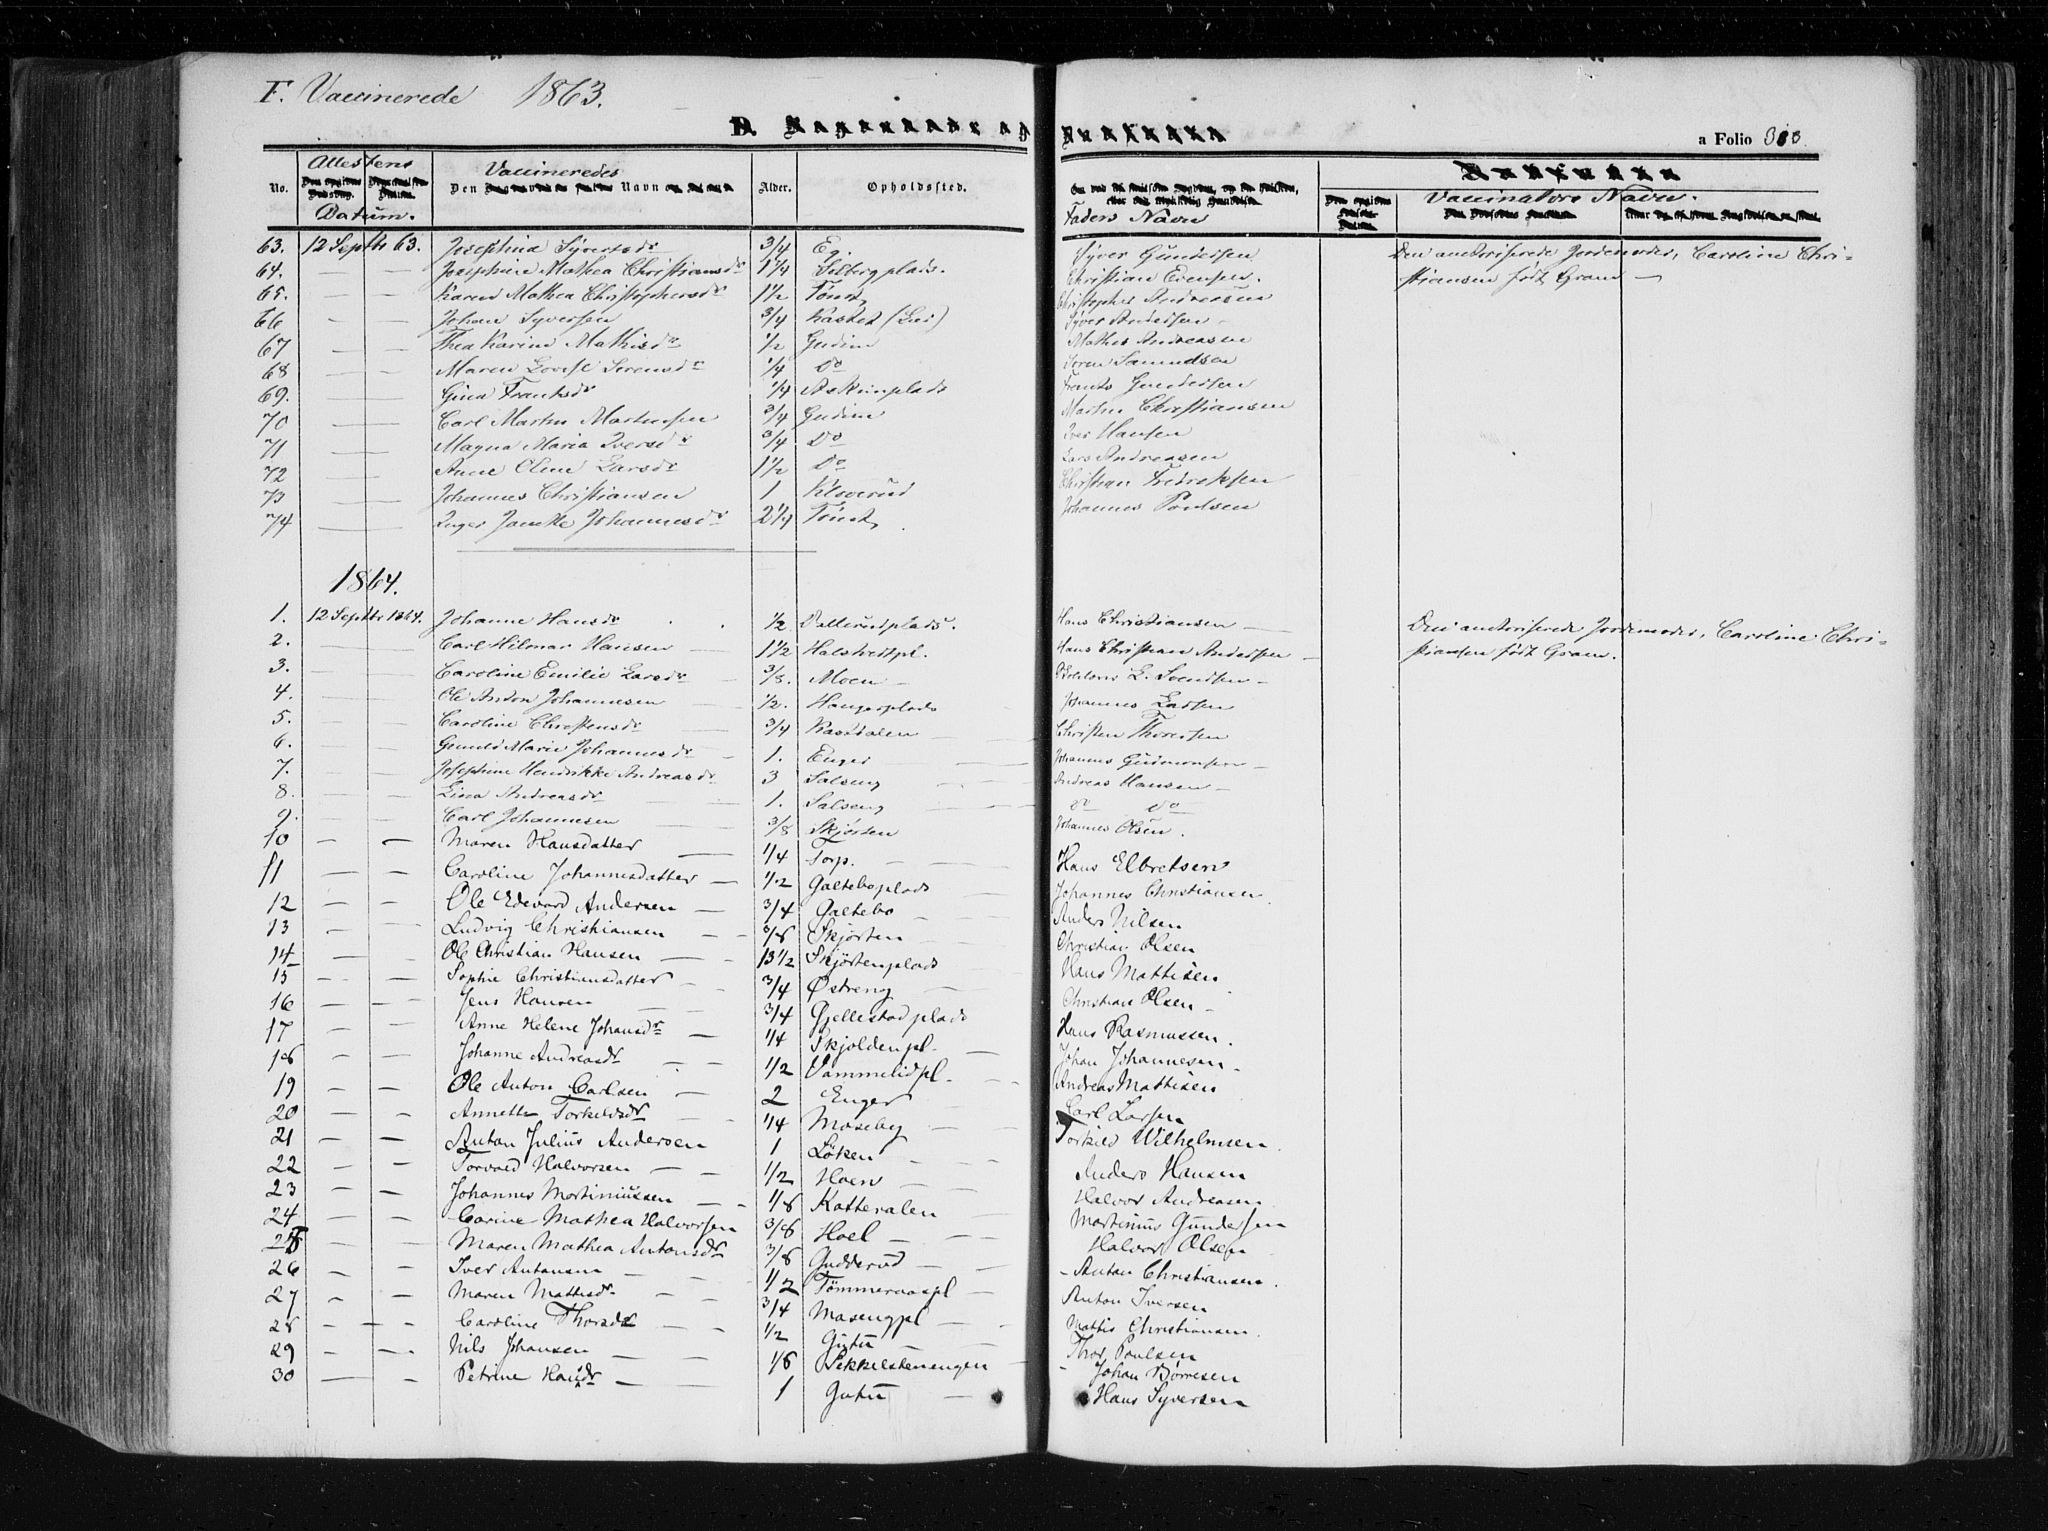 F. Vaccinerede 1863.
a Folio
No. Attestens Datum. Den Vaccineredes Navn Alder. Opholdssted. Faders Navn Vaccinators Navn.
63. 12 Septbr 63. Josephina Syversdr 3/4 Eg Syver Gundersen Den autoriserede Jordemoder, Caroline Chri-
64. — — Josephine Mathea Christiansdr 1 1/4 plads. Christian Evensen. stiansen født Gram —
65. — — Karen Mathea Christophersdr 1 1/2 Christopher Andreasen
66 — — Johan Syversen 3/4 Kastet Syver Andersen
67 — — Thea Karine Mathisdr 1/2 Gudim Mathis Andreasen
68 — — Maren Lovise Sørensdr 1/4 Do Søren Samuelsen
69. — — Gina Frantsdr 1/4 Askimplads Frants Gundersen
70 — — Carl Martin Martinsen 3/4 Gudim Martin Christiansen
71 — — Magna Maria Iversdr 3/4 Do Iver Hansen
72 — — Anne Oline Larsdr 1 1/2 Do Lars Andreasen
73 — — Johannes Christiansen 1 Kloverud Christian Fredriksen
74 — — Inger Johannesdr 2 1/4 Johannes Poulsen
1864.
1. 12 Septbr 1864. Johanne Hansdr 1/2 Vallerudplads. Hans Christiansen — Den autoriserede Jordemoder, Caroline Chri-
2. — — Carl Hilmar Hansen 1 1/2 Halstvedtpl. Hans Christian Andersen — stiansen født Gram.
3. — — Caroline Emilie Larsdr 3/8. Moen L. Svendsen —
4. — — Ole Anton Johannesen 1/2. Haugerplads Johannes Larsen
5. — — Caroline Christensdr 3/4 Kastdalen — Christen Thoresen
6. — — Marie Johannesdr 1. Enger Johannes Gudmonsen —
7. — — Josephine Hendrikke Andreasdr 3 Salseng Andreas Hansen —
8. — — Lina Andreasdr 1. Salseng do do
9. — — Carl Johannesen 3/8 Skjørten Johannes Olsen.
10 — — Maren Hansdatter 1/4 Torp. Hans Elbretsen
11 — — Caroline Johannesdatter — 1/2 Galteboplads Johannes Christiansen
12 — — Ole Edevard Andersen — 3/4 Galtebo — Anders Nilsen
13 — — Ludvig Christiansen — 3/8 Skjørten — Christian Olsen
14 — — Ole Christian Hansen — 13 1/2 Skjørtenplads Hans Mattisen
15 — — Sophie Christiansdatter — 3/4 Østreng — Christian Olsen —
16 — — Jens Hansen — 3/4 Gjellestadplads Hans Rasmussen.
17 — — Anne Helene Johansdr — 1/4 Skjoldenpl. — Johan Johannesen —
18 — — Johanne Andreasdr 1/2 Vammelidpl. Andreas Mattisen
19 — — Ole Anton Carlsen — 2 Enger — Carl Larsen
20 — — Annette Torkildsdr — 1/4 Moseby — Torkild Wilhelmsen.
21 — — Anton Julius Andersen 1 Løken — Anders Hansen
22 — — Torvald Halvorsen — 1/2 Hoen — Halvor Andreasen
23 — — Johannes Martiniussen — 1/8 Katteralen — Martinius Gundersen
24 — — Carine Mathea Halvorsen 3/8 Hoel — Halvor Olsen
25 — — Maren Mathea Antonsdr 3/8 Gudderud — Anton Christiansen.
26 — — Iver Antonsen — 1/2 Tømmeraaspl — Anton Iversen
27 — — Maren Mattisdr — 3/4 Masengpl — Mattis Christiansen.
28 — — Caroline Thorsdr — 1/2 Gutu — Thor Poulsen
29 — — Nils Johansen — 1/8 Sekkelstenengen — Johan Børresen
30 — — Petrine Hansdr — 1 Gutu — Hans Syversen